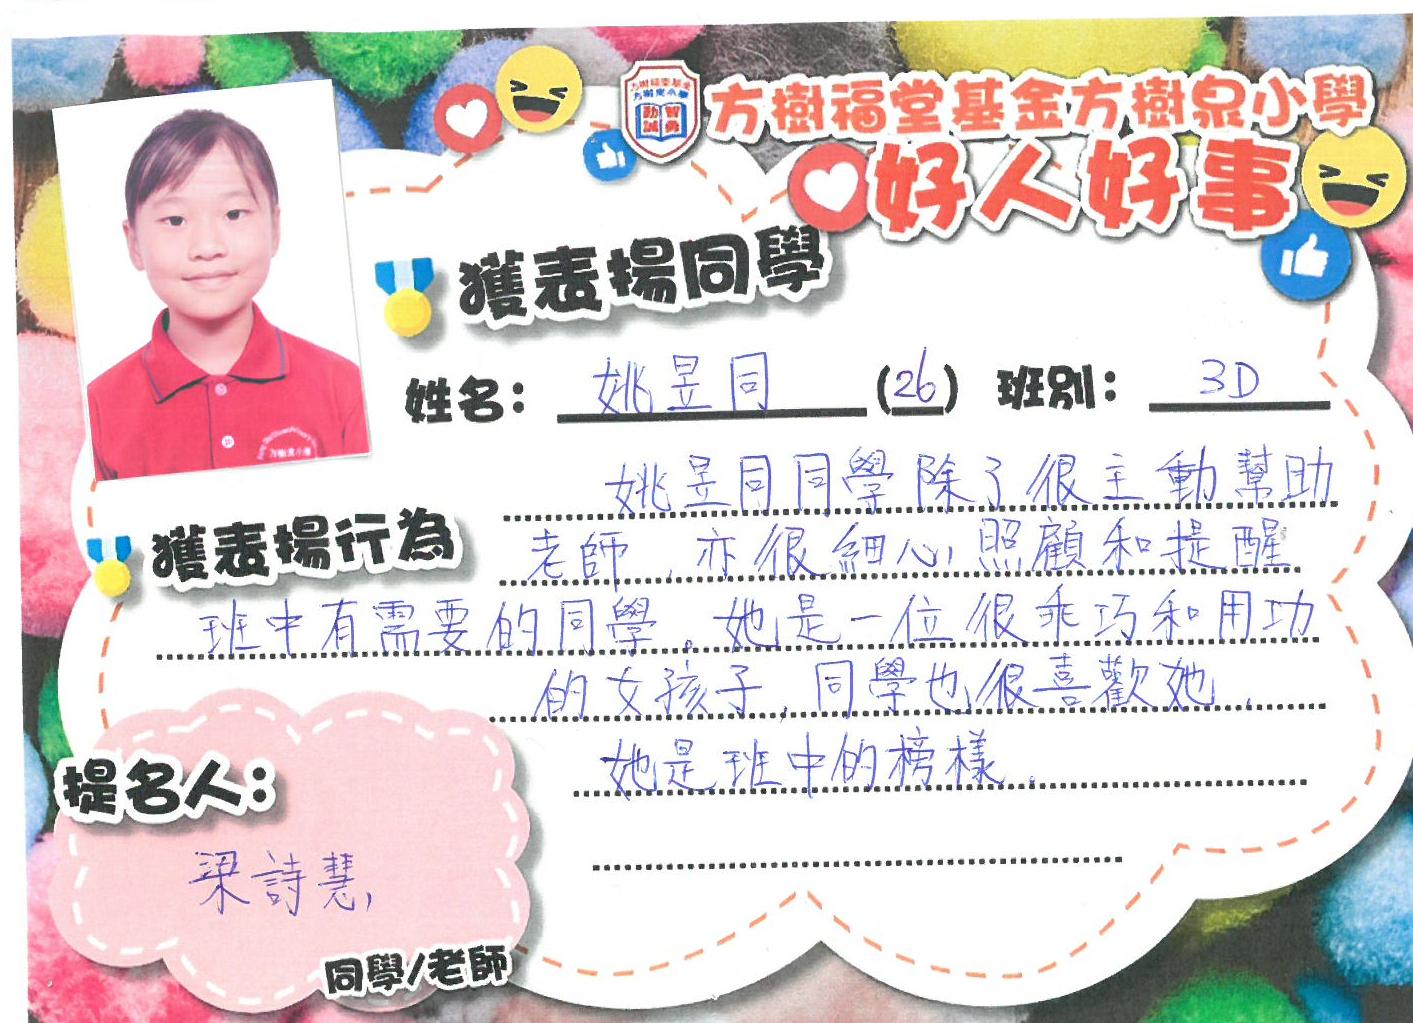 方樹福堂基金方樹泉小學
好人好事
獲表揚同學
姓名： 姚昱同 (26) 班別： 3D
獲表揚行為
姚昱同同學除了很主動幫助
老師，亦很細心照顧和提醒
班中有需要的同學。她是一位很乖巧和用功
的女孩子，同學也很喜歡她，
她是班中的榜樣。
提名人：
梁詩慧
同學/老師